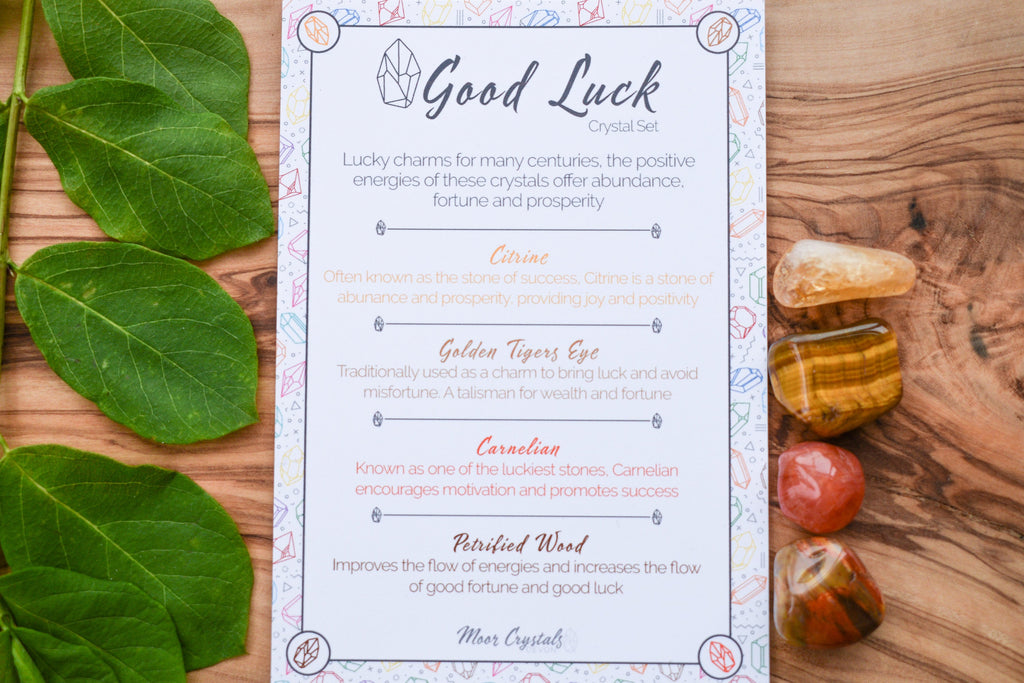 Good Luck
Crystal Set
Lucky charms for many centuries, the positive
energies of these crystals offer abundance,
fortune and prosperity
Citrine
Often known as the stone of success, Citrine is a stone of
abunance and prosperity, providing joy and positivity
Golden Tigers Eye
Traditionally used as a charm to bring luck and avoid
misfortune. A talisman for wealth and fortune
Carnelian
Known as one of the luckiest stones, Carnelian
encourages motivation and promotes success
Petrified Wood
Improves the flow of energies and increases the flow
of good fortune and good luck
Moor Crystals